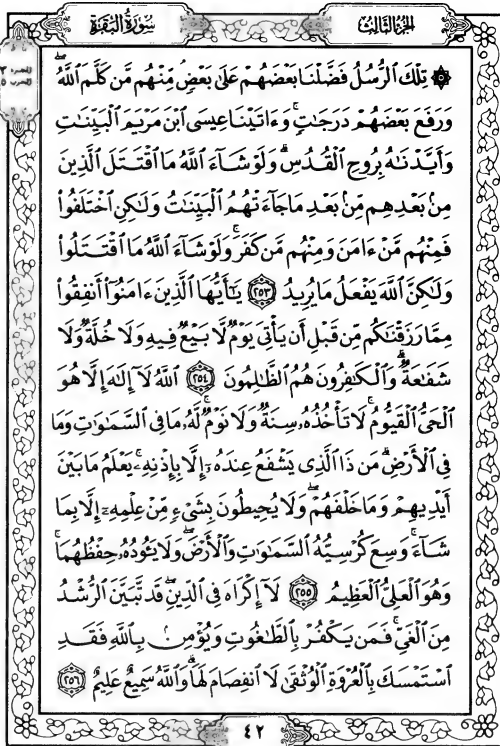 سُورَةُ الْبَقَرَةِ
الجُزْءُ الثَّالِثُ
۞ تِلْكَ ٱلرُّسُلُ فَضَّلْنَا بَعْضَهُمْ عَلَىٰ بَعْضٍۘ مِّنْهُم مَّن كَلَّمَ ٱللَّهُۖ
وَرَفَعَ بَعْضَهُمْ دَرَجَٰتٍۚ وَءَاتَيْنَا عِيسَى ٱبْنَ مَرْيَمَ ٱلْبَيِّنَٰتِ
وَأَيَّدْنَٰهُ بِرُوحِ ٱلْقُدُسِۗ وَلَوْ شَآءَ ٱللَّهُ مَا ٱقْتَتَلَ ٱلَّذِينَ
مِنۢ بَعْدِهِم مِّنۢ بَعْدِ مَا جَآءَتْهُمُ ٱلْبَيِّنَٰتُ وَلَٰكِنِ ٱخْتَلَفُوا۟
فَمِنْهُم مَّنْ ءَامَنَ وَمِنْهُم مَّن كَفَرَۚ وَلَوْ شَآءَ ٱللَّهُ مَا ٱقْتَتَلُوا۟
وَلَٰكِنَّ ٱللَّهَ يَفْعَلُ مَا يُرِيدُ ٢٥٣ يَٰٓأَيُّهَا ٱلَّذِينَ ءَامَنُوٓا۟ أَنفِقُوا۟
مِمَّا رَزَقْنَٰكُم مِّن قَبْلِ أَن يَأْتِىَ يَوْمٌ لَّا بَيْعٌ فِيهِ وَلَا خُلَّةٌ وَلَا
شَفَٰعَةٌۗ وَٱلْكَٰفِرُونَ هُمُ ٱلظَّٰلِمُونَ ٢٥٤ ٱللَّهُ لَآ إِلَٰهَ إِلَّا هُوَ
ٱلْحَىُّ ٱلْقَيُّومُۚ لَا تَأْخُذُهُۥ سِنَةٌ وَلَا نَوْمٌۚ لَّهُۥ مَا فِى ٱلسَّمَٰوَٰتِ وَمَا
فِى ٱلْأَرْضِۗ مَن ذَا ٱلَّذِى يَشْفَعُ عِندَهُۥٓ إِلَّا بِإِذْنِهِۦۚ يَعْلَمُ مَا بَيْنَ
أَيْدِيهِمْ وَمَا خَلْفَهُمْۖ وَلَا يُحِيطُونَ بِشَىْءٍ مِّنْ عِلْمِهِۦٓ إِلَّا بِمَا
شَآءَۚ وَسِعَ كُرْسِيُّهُ ٱلسَّمَٰوَٰتِ وَٱلْأَرْضَۖ وَلَا يَـُٔودُهُۥ حِفْظُهُمَاۚ
وَهُوَ ٱلْعَلِىُّ ٱلْعَظِيمُ ٢٥٥ لَآ إِكْرَاهَ فِى ٱلدِّينِۖ قَد تَّبَيَّنَ ٱلرُّشْدُ
مِنَ ٱلْغَىِّۚ فَمَن يَكْفُرْ بِٱلطَّٰغُوتِ وَيُؤْمِنۢ بِٱللَّهِ فَقَدِ
ٱسْتَمْسَكَ بِٱلْعُرْوَةِ ٱلْوُثْقَىٰ لَا ٱنفِصَامَ لَهَاۗ وَٱللَّهُ سَمِيعٌ عَلِيمٌ ٢٥٦
٤٢